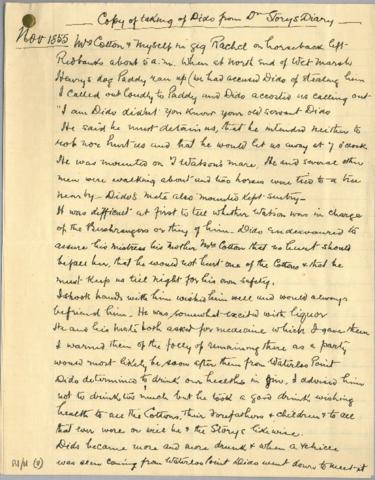 Copy of taking of Dido from Dr Story's Diary
Nov 1855 Mrs Cotton & Myself in gig Rachel on horseback left
Redbands about 5 a.m. when at north end of Wet Marsh
Henry's dog Paddy ran up (we had accused Dido of stealing him
I called out loudly to Paddy and Dido accosted us calling out
"I am Dido didnt you know your old servant Dido
He said he must detain us, that he intended neither to
rob nor hurt us and that he would let us away at 7 o'clock
He was mounted on J Watson's mare. He and several other
men were walking about and two horses were tied to a tree
near by – Dido's mate also mounted kept sentry –
It was difficult at first to tell whether Watson was in charge
of the Bushrangers or they of him. Dido endeavoured to
assure his mistress his mother Mrs Cotton that no hurt should
befall her, that he would not hurt one of the Cottons & that he
must keep us till night for his own safety.
I shook hands with him wished him well and would always
befriend him – He was somewhat excited with liquor
He and his mate both asked for medicine which I gave them
I warned them of the folly of remaining there as a party
would most likely be soon after them from Waterloo Point
Dido determined to drink our healths in Gin, I advised him
not to drink too much but he took a good drink wishing
health to all the Cottons, their forefathers & children & to all
that ever were or will be & the Storys likewise.
Dido became more and more drunk & when a vehicle
was seen coming from Waterloo Point Dido went down to meet it